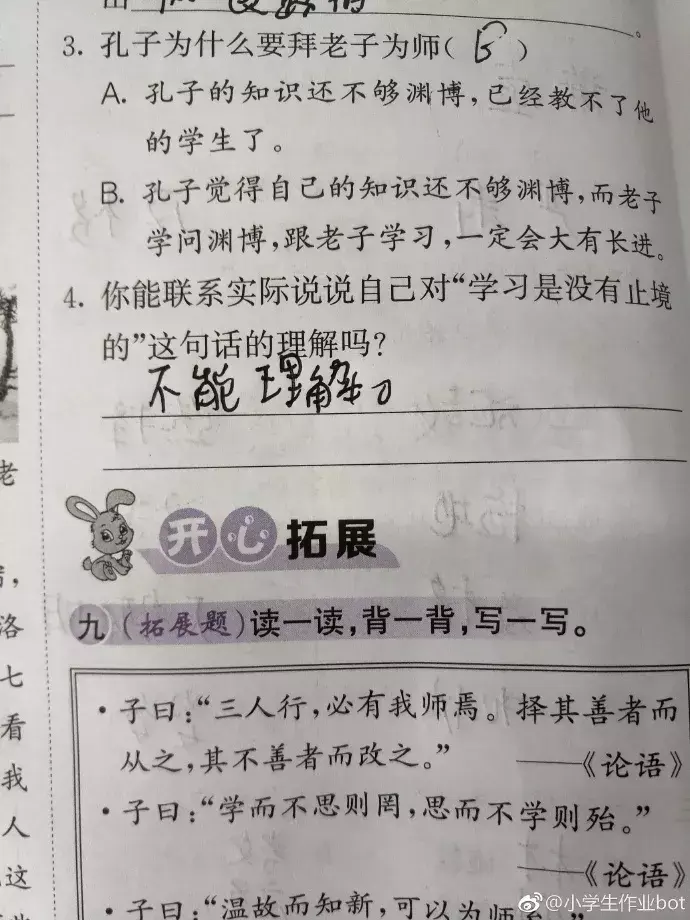 3. 孔子为什么要拜老子为师( B )
A. 孔子的知识还不够渊博,已经教不了他
的学生了。
B. 孔子觉得自己的知识还不够渊博,而老子
学问渊博,跟老子学习,一定会大有长进。
4. 你能联系实际说说自己对“学习是没有止境
的”这句话的理解吗?
不能理解
老
洛
七
看
我
人
这
开心拓展
九 (拓展题)读一读,背一背,写一写。
·子曰:“三人行,必有我师焉。择其善者而
从之,其不善者而改之。” ——《论语》
·子曰:“学而不思则罔,思而不学则殆。”
——《论语》
·子曰:“温故而知新,可以为师
@小学生作业bot